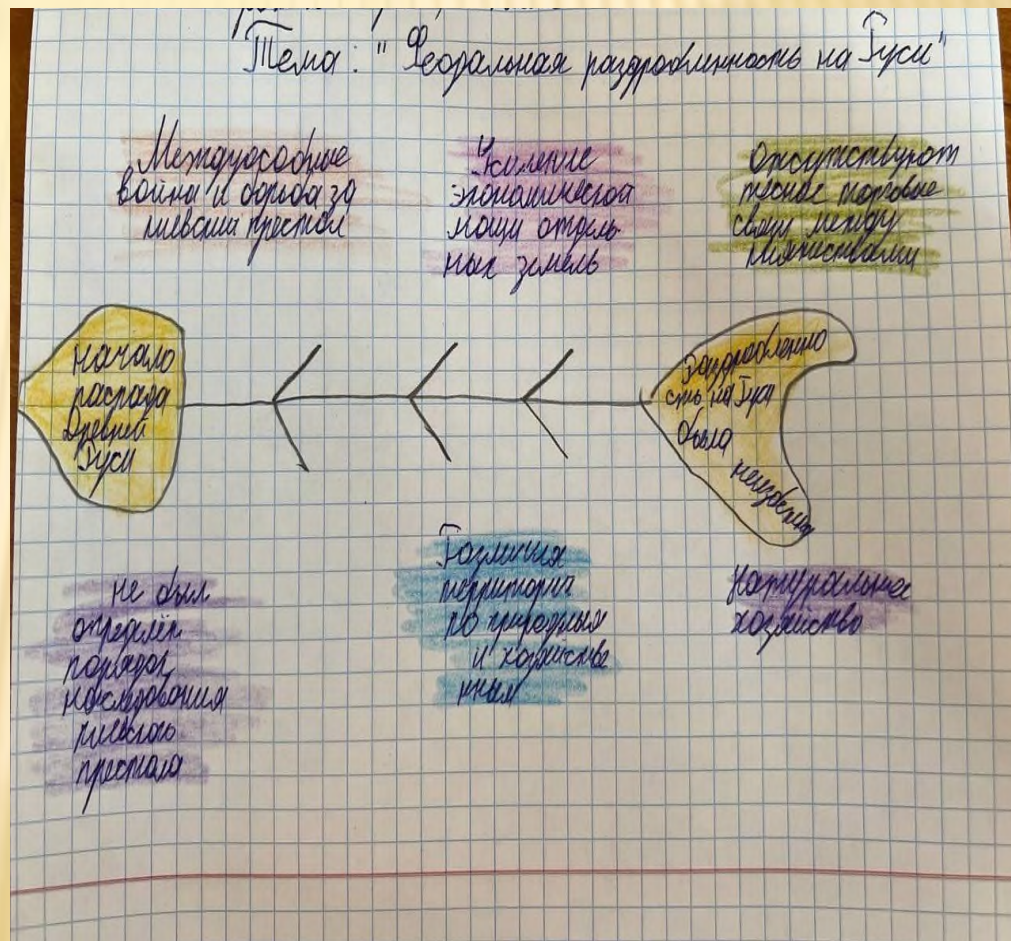 Тема: "Феодальная раздробленность на Руси"
Междуособные
война и борьба за
киевский престол
Усиление
экономической
мощи отдель
ных земель
Отсутствуют
тесные торговые
связи между
княжествами
Начало
распада
Древней
Руси
Раздробленно
сть на Руси
была
неизбежна
Не был
определён
порядок
наследования
киевского
престола
Различия
территорий
по природным
и хозяйстве
нным
Натуральное
хозяйство